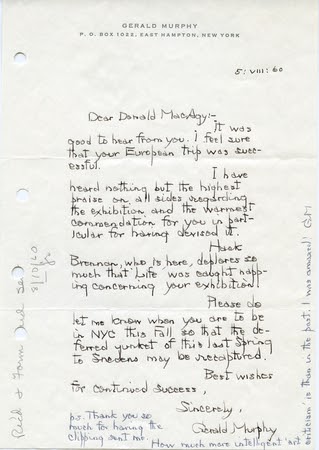 GERALD MURPHY
P. O. BOX 1022, EAST HAMPTON, NEW YORK
5:VIII:60
Dear Donald MacAgy:-
It was
good to hear from you. I feel sure
that your European trip was suc-
cessful.
I have
heard nothing but the highest
praise on all sides regarding
the exhibition and the warmest
commendation for you in part-
icular for having devised it.
Hank
Brennan, who is here, declares so
much that 'Life' was caught napp-
ing concerning your exhibition!
Please do
let me know when you are to be
in NYC this Fall so that the de-
ferred junket of this last Spring
to Snedens may be recaptured.
Best wishes
for continued success,
Sincerely,
Gerald Murphy
ps. Thank you so
much for having the
clipping sent me.
How much more intelligent 'art
criticism' is than in the past. I was amazed! GM
8/10/60